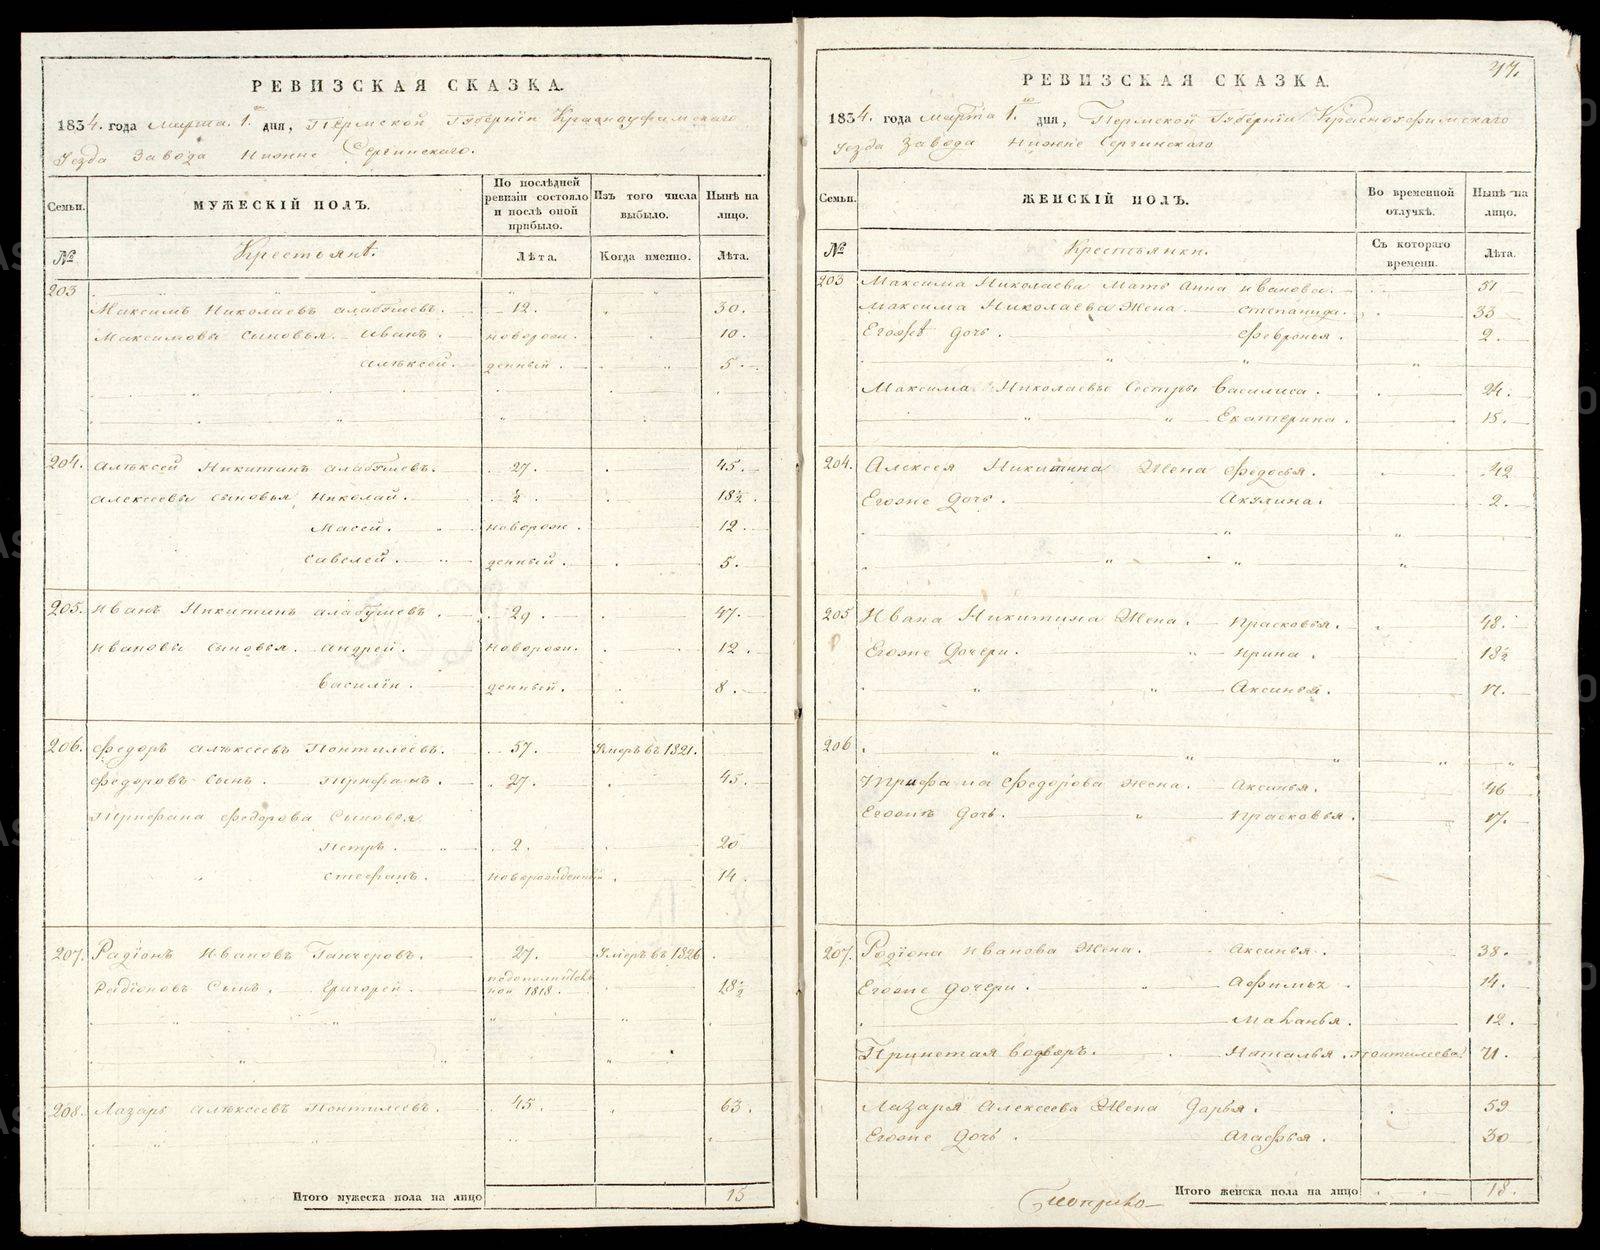 РЕВИЗСКАЯ СКАЗКА.
1834. года марта. 1. го дня, Пермской Губернiи Краснауфимскаго
Уезда Завода Нижне Сергинскаго.
Семьи.
МУЖЕСКIЙ ПОЛЪ.
По послѣдней ревизiи состояло и послѣ оной прибыло.
Изъ того числа выбыло.
Нынѣ на лицо.
№
Крестьянъ.
Лѣта.
Когда именно.
Лѣта.
203
Максимъ Николаевъ Алабушевъ. 12. 30.
Максимовы сыновья. Иванъ. новорож. 10.
Алѣксей. денный. 5.
204. Алѣксей Никитинъ Алабушевъ. 27. 45.
Алексеевы сыновья Николай. ½. 18½.
Масей. новорож. 12.
Савелей. денный. 5.
205. Иванъ Никитинъ Алабушевъ. 29. 47.
Ивановы сыновья. Андрей. новорож. 12.
Василiи. денный. 8.
206. Федоръ Алѣксеевъ Пантилеевъ. 57. Умеръ въ 1821.
Федоровъ сынъ. Трифанъ. 27. 45.
Трифана Федорова Сыновья
Петръ. 2. 20
Стефанъ. новорожденный. 14.
207. Радiонъ Ивановъ Ганчеровъ. 27. Умеръ въ 1826
Радiоновъ Сынъ. Григорей. 1818. 18½
208. Лазарь Алѣксеевъ Пантилеевъ. 45. 63.
Итого мужеска пола на лицо 15
47.
РЕВИЗСКАЯ СКАЗКА.
1834. года марта 1. го дня, Пермской Губернiи Красноуфимскаго
Уезда Завода Нижне Сергинскаго
Семьи.
ЖЕНСКIЙ ПОЛЪ.
Во временной отлучкѣ.
Нынѣ на лицо.
№
Крестьянки.
Съ котораго времени.
Лѣта.
203 Максима Николаева Мать Анна Иванова. 51
Максима Николаева Жена Степанида. 33
Егожъ дочь. Февронья. 2.
Максима Николаевы Сестры Василиса. 24.
Екатерина. 15.
204. Алексея Никитина Жена Федосья. 42
Егоже дочь. Акулина. 2.
205 Ивана Никитина Жена. Прасковья. 48.
Егоже Дочери. Ирина. 18½
Аксинья. 17.
206
Трифана Федорова жена. Аксинья. 46
Егоже дочь. Прасковья. 17.
207. Родiона Иванова Жена. Аксинья. 38.
Егоже дочери. Афимья. 14.
Маланья. 12.
Принетая водворъ. Наталья. Пантилеева. 71.
Лазаря Алексеева Жена Дарья. 59
Егоже дочь. Агафья. 30
Итого женска пола на лицо 18.